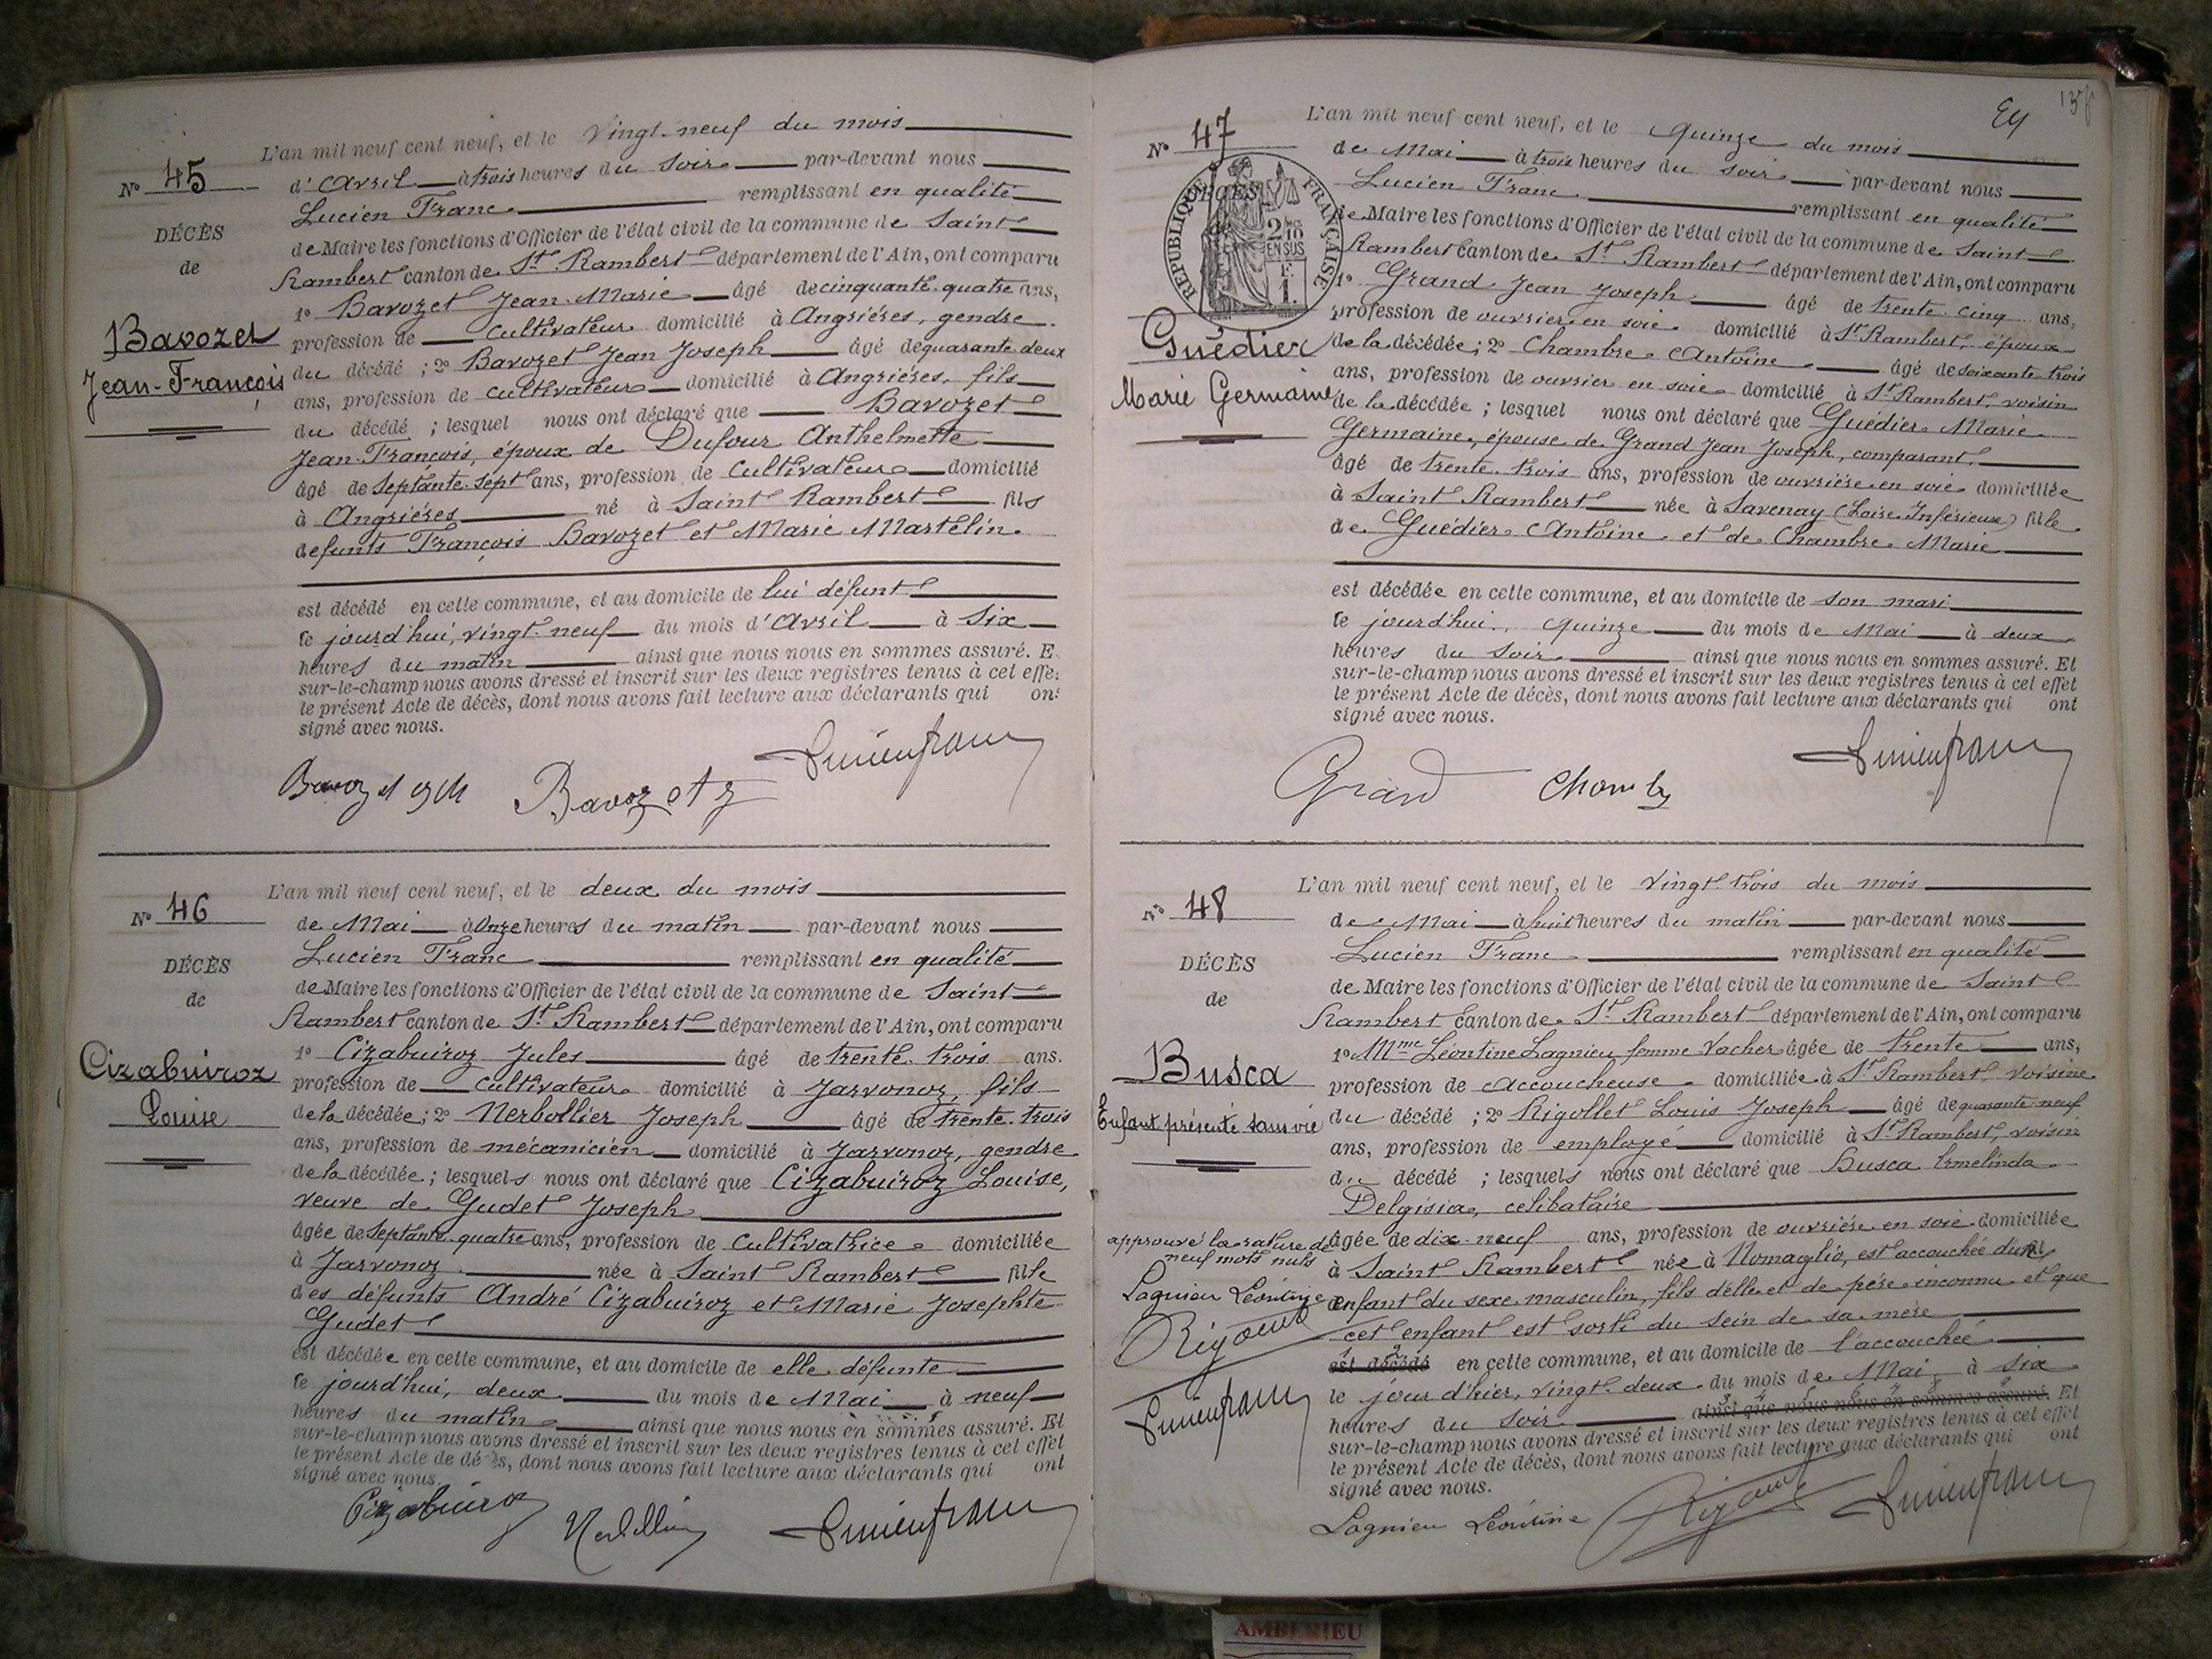 L'an mil neuf cent neuf, et le vingt-neuf du mois
N° 45
d'Avril à trois heures du soir par-devant nous
Lucien Franc remplissant en qualité
DÉCÈS
de Maire les fonctions d'Officier de l'état civil de la commune de Saint
de
Rambert canton de St Rambert département de l'Ain, ont comparu
1° Bavozet Jean-Marie âgé de cinquante-quatre ans,
Bavozet
profession de cultivateur domicilié à Angrières, gendre
Jean-François
du décédé ; 2° Bavozet Jean Joseph âgé de quarante deux
ans, profession de cultivateur domicilié à Angrières, fils
du décédé ; lesquel nous ont déclaré que Bavozet
Jean-François, époux de Dufour Anthelmette
âgé de septante-sept ans, profession de cultivateur domicilié
à Angrières né à Saint Rambert fils
defunts François Bavozet et Marie Martelin
est décédé en cette commune, et au domicile de lui défunt
le jourd'hui, vingt-neuf du mois d'Avril à six
heures du matin ainsi que nous nous en sommes assuré. E
sur-le-champ nous avons dressé et inscrit sur les deux registres tenus à cet effe
le présent Acte de décès, dont nous avons fait lecture aux déclarants qui ont
signé avec nous.
Bavozet Lucien Franc
L'an mil neuf cent neuf, et le deux du mois
N° 46
de Mai à onze heures du matin par-devant nous
Lucien Franc remplissant en qualité
DÉCÈS
de Maire les fonctions d'Officier de l'état civil de la commune de Saint
de
Rambert canton de St Rambert département de l'Ain, ont comparu
1° Cizabuiroz Jules âgé de trente-trois ans.
Cizabuiroz
profession de cultivateur domicilié à Jarvonoz, fils
Louise
de la décédée ; 2° Nerbollier Joseph âgé de trente-trois
ans, profession de mécanicien domicilié à Jarvonoz, gendre
de la décédée ; lesquels nous ont déclaré que Cizabuiroz Louise,
veuve de Gudet Joseph
âgée de septante-quatre ans, profession de cultivatrice domiciliée
à Jarvonoz née à Saint Rambert fille
des défunts André Cizabuiroz et Marie Josephte
Gudet
est décédée en cette commune, et au domicile de elle défunte
le jourd'hui, deux du mois de Mai à neuf
heures du matin ainsi que nous nous en sommes assuré. Et
sur-le-champ nous avons dressé et inscrit sur les deux registres tenus à cet effet
le présent Acte de décès, dont nous avons fait lecture aux déclarants qui ont
signé avec nous.
Cizabuiroz Nerbollier Lucien Franc
L'an mil neuf cent neuf, et le quinze du mois
N° 47
de Mai à trois heures du soir par-devant nous
Lucien Franc remplissant en qualité
DÉCÈS
RÉPUBLIQUE FRANÇAISE
2/10 EN SUS
F. 1.
de Maire les fonctions d'Officier de l'état civil de la commune de Saint
Rambert canton de St Rambert département de l'Ain, ont comparu
1° Grand Jean Joseph âgé de trente-cinq ans,
profession de ouvrier en soie domicilié à St Rambert, époux
Guédier
de la décédée ; 2° Chambre Antoine âgé de soixante-trois
Marie Germaine
ans, profession de ouvrier en soie domicilié à St Rambert, voisin
de la décédée ; lesquel nous ont déclaré que Guédier Marie
Germaine, épouse de Grand Jean Joseph, comparant
âgé de trente-trois ans, profession de ouvrière en soie domiciliée
à Saint Rambert née à Savenay (Loire Inférieure) fille
de Guédier Antoine et de Chambre Marie
est décédée en cette commune, et au domicile de son mari
le jourd'hui, quinze du mois de Mai à deux
heures du soir ainsi que nous nous en sommes assuré. Et
sur-le-champ nous avons dressé et inscrit sur les deux registres tenus à cet effet
le présent Acte de décès, dont nous avons fait lecture aux déclarants qui ont
signé avec nous.
Grand Lucien Franc
L'an mil neuf cent neuf, et le vingt-trois du mois
N° 48
de Mai à huit heures du matin par-devant nous
Lucien Franc remplissant en qualité
DÉCÈS
de Maire les fonctions d'Officier de l'état civil de la commune de Saint
de
Rambert canton de St Rambert département de l'Ain, ont comparu
1° Mme Léontine Lagnieu femme Vacher âgée de trente ans,
Busca
profession de accoucheuse domiciliée à St Rambert, voisine
Enfant présenté sans vie
du décédé ; 2° Rigollet Louis Joseph âgé de quarante-neuf
ans, profession de employé domicilié à St Rambert, voisin
du décédé ; lesquels nous ont déclaré que Busca Ermelinda
Delgisia, celibataire
âgée de dix-neuf ans, profession de ouvrière en soie domiciliée
approuvé la rature de
neuf mots nuls
à Saint Rambert née à Nomaglio, est accouchée d'un
Lagnieu Léontine
enfant du sexe masculin, fils d'elle et de père inconnu et que
cet enfant est sorti du sein de sa mère
est décédé en cette commune, et au domicile de l'accouchée
le jour d'hier, vingt-deux du mois de Mai à six
Lucien Franc
heures du soir ainsi que nous nous en sommes assuré. Et
sur-le-champ nous avons dressé et inscrit sur les deux registres tenus à cet effet
le présent Acte de décès, dont nous avons fait lecture aux déclarants qui ont
signé avec nous.
Lagnieu Léontine Lucien Franc
AMBERIEU